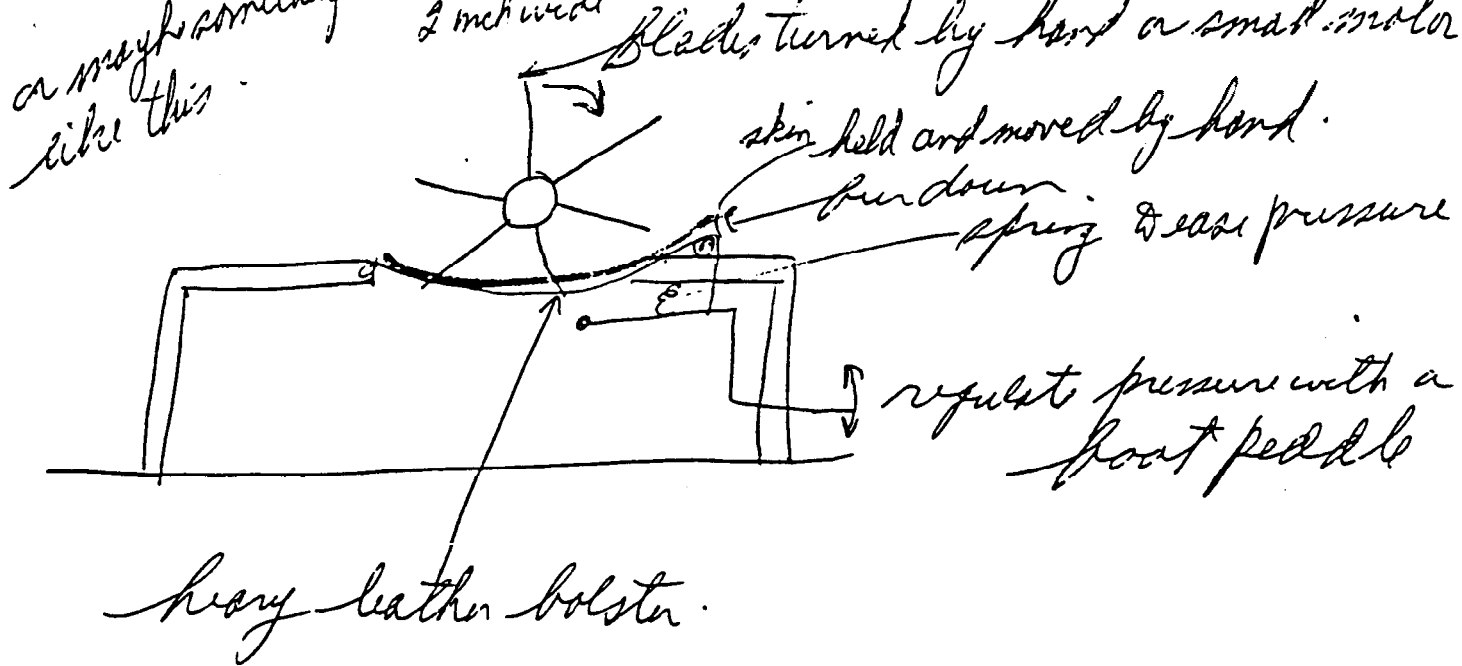 or maybe something
like this.
2 inch wide
Blades turned by hand or small motor
skin held and moved by hand.
fur down
spring to ease pressure
regulate pressure with a
foot peddle
heavy leather bolster.